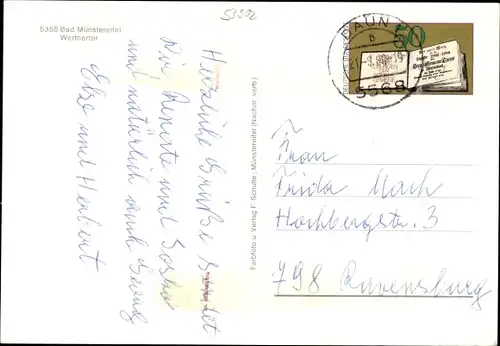 53902
5358 Bad Münstereifel
Werthertor
Herzliche Grüße sendet
Dir Renate und
und natürlich auch
Else und Herbert
Farbfoto u. Verlag F. Schulte, Münstereifel (Nachdr. verb.)
DAUN
5568
50
Frau
Frida Mach
Hochbergstr. 3
798 Ravensburg